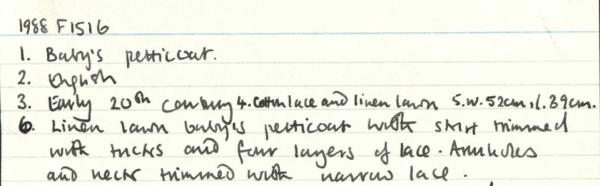 1988 F1516
1. Baby's petticoat.
2. English
3. Early 20th century 4. Cotton lace and linen lawn 5. W. 52cm, l. 39cm.
6. Linen lawn baby's petticoat with skirt trimmed
with tucks and four layers of lace. Armholes
and neck trimmed with narrow lace.